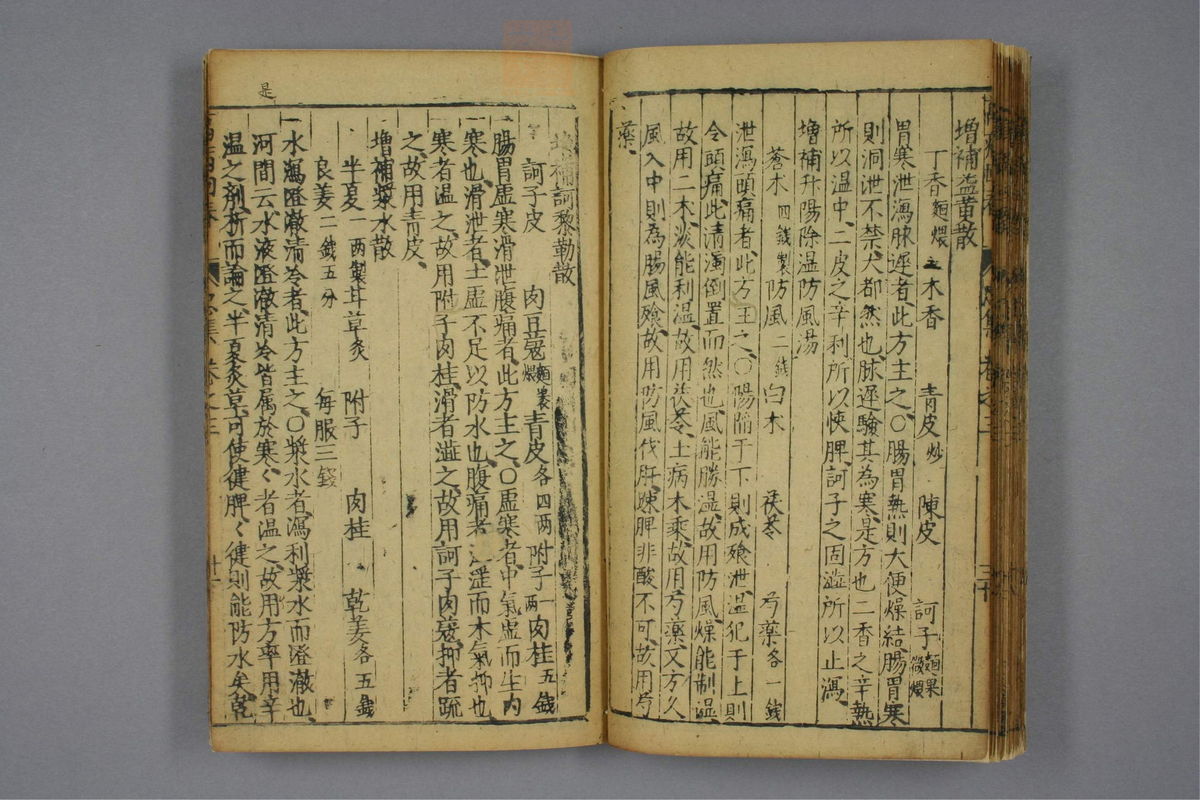 增補益黄散
丁香麵煨 木香 青皮炒 陳皮 訶子麵果微煨
胃寒泄瀉脉遲者、此方主之、〇腸胃熱則大便燥結、腸胃寒
則洞泄不禁、大都然也、脉遲驗其為寒、是方也、二香之辛熱
所以温中、二皮之辛利所以快脾、訶子之固澁所以止瀉、
增補升陽除温防風湯
蒼木四錢製 防風二錢 白木 茯苓 芍藥各一錢
泄瀉頭痛者、此方主之、〇陽陷于下、則成飧泄、温犯于上、則
令頭痛、此清濁倒置而然也、風能勝温、故用防風、燥能制温、
故用二木、淡能利温、故用茯苓、土病木乘、故用芍藥、又方久
風入中、則為腸風飧、故用防風伐肝、疎脾非酸不可、故用芍
藥、
增補訶黎勒散
訶子皮 肉豆蔻麵裹煨 青皮各四两 附子一两 肉桂五錢
腸胃虚寒、滑泄腹痛者、此方主之、〇虚寒者、中氣虚而生内
寒也、滑泄者、土虚不足以防水也、腹痛者、 溼而木氣抑也、
寒者温之、故用附子肉桂、滑者澁之、故用訶子肉蔻、抑者疏
之、故用青皮、
增補漿水散
半夏一两製 甘草炙 附子 肉桂 乾姜各五錢
良姜二錢五分 每服三錢
一水瀉澄澈清冷者、此方主之、〇漿水者、瀉利漿水而澄澈也、
河間云、水液澄澈清冷、皆属於寒、〻者温之、故用方率用辛
温之剂、析而論之、半夏炙草、可使健脾、〻健則能防水矣、乾
是